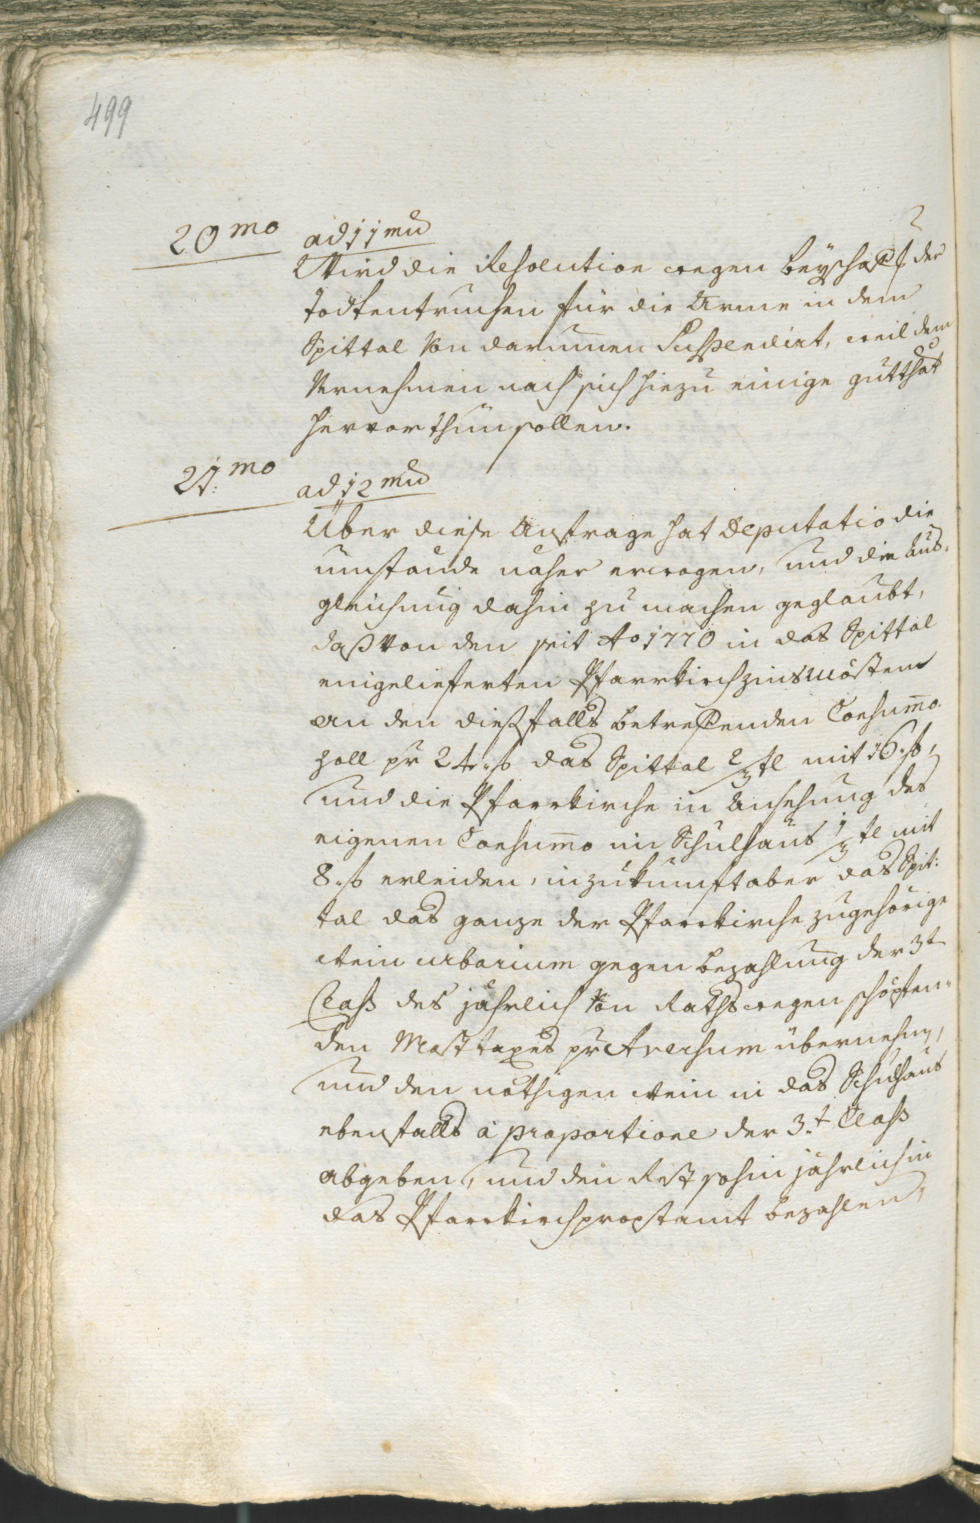 499
20mo ad 11mu
Wird die Resolution wegen Beyschaff der
Todtentruchen für die Arme in dem
Spittal von darummen Suspendirt, weil dem
Vernehmen nach sich hiezu einige gutthat
hervor thun sollen.
21mo ad 12mu
Über diese Anfrage hat Deputatio die
umstände näher erwogen, und die Aus-
gleichung dahin zu machen geglaubt,
daß von den seit Ao 1770 in das Spittal
eingelieferten Pfarrkirchzinsmösten
an den dießfalls betreffenden Consumo
zoll pr 24 f das Spittal 2/3 tl mit 16 f,
und die Pfarrkirche in Ansehung des
eigenen Consumo im Schulhaus 1/3 tl mit
8 f erleiden, inzukunft aber das Spit:
tal das ganze der Pfarrkirche zugehörige
Wein urbarium gegen Bezahlung der 3t
Class des jährlich von Rathswegen schöpfen-
den Mosttaxes pr Aversum übernehmen,
und den nöthigen Wein in das Schulhaus
ebenfalls à proportione der 3.t Class
abgeben, und den Rest sohin jährlich in
das Pfarrkirchpropstamt bezahlen,